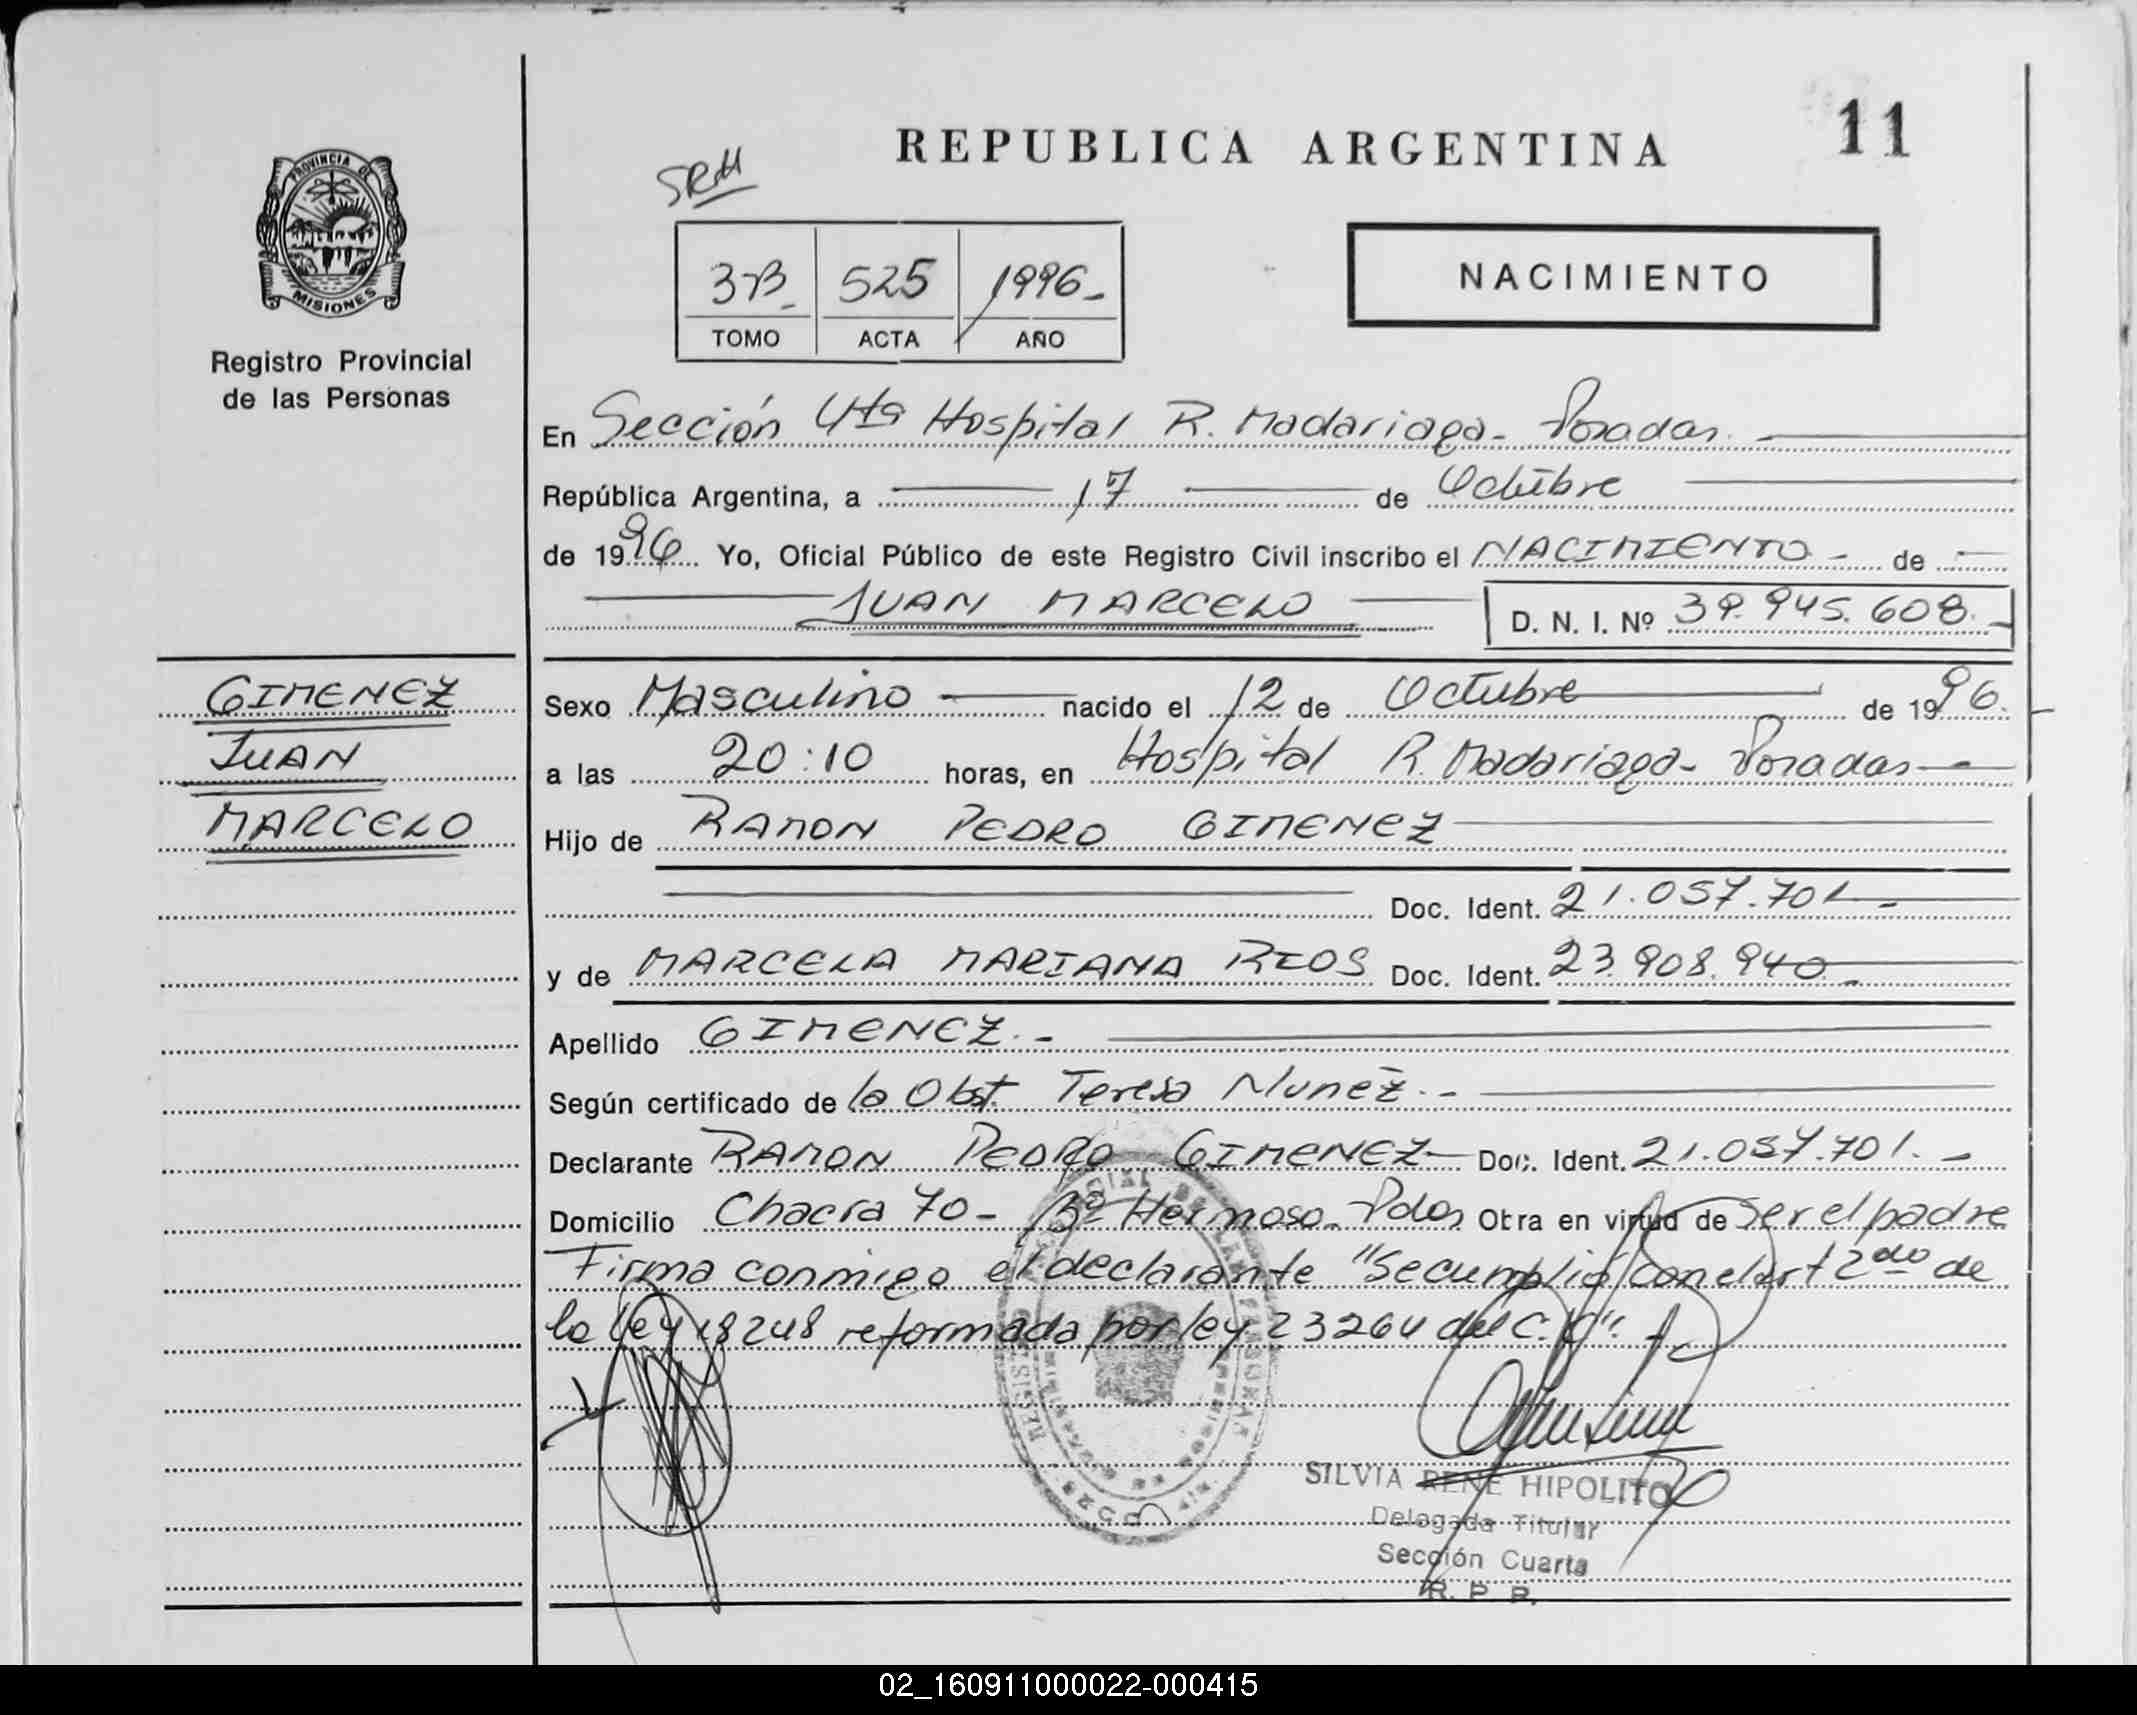 REPUBLICA ARGENTINA
11
SRH
PROVINCIA DE
MISIONES
Registro Provincial
de las Personas
3-B- 525 1996-
TOMO ACTA AÑO
NACIMIENTO
En Sección 4ta Hospital R. Madariaga- Posadas.-
República Argentina, a 17 de Octubre
de 1996 Yo, Oficial Público de este Registro Civil inscribo el NACIMIENTO - de
JUAN MARCELO D. N. I. Nº 39.945.608.-
GIMENEZ
JUAN
MARCELO
Sexo Masculino nacido el 12 de Octubre de 1996.
a las 20:10 horas, en Hospital R. Madariaga- Posadas-
Hijo de RAMON PEDRO GIMENEZ
Doc. Ident. 21.057.701-
y de MARCELA MARIANA RIOS Doc. Ident. 23.908.940.-
Apellido GIMENEZ.-
Según certificado de la Obst. Teresa Nunez.-
Declarante RAMON PEDRO GIMENEZ- Doc. Ident. 21.057.701.-
Domicilio Chacra 70- Bº Hermoso- Pdas Obra en virtud de ser el padre
Firma conmigo el declarante "Se cumplió con el art 2do de
la ley 18248 reformada por ley 23264 del C.C".-
SILVIA RENE HIPOLITO
Delegada Titular
Sección Cuarta
R. P. P.
02_160911000022-000415